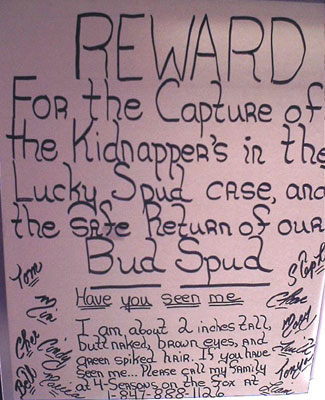 REWARD
For the Capture of
the Kidnapper's in the
Lucky Spud case, and
the safe Return of our
Bud Spud
Have you seen me
I am about 2 inches tall,
butt naked, brown eyes, and
green spiked hair. If you have
seen me... Please call my family
at 4-Seasons on the Fox at
1-847-888-1126
Tom
Cher
Cindy